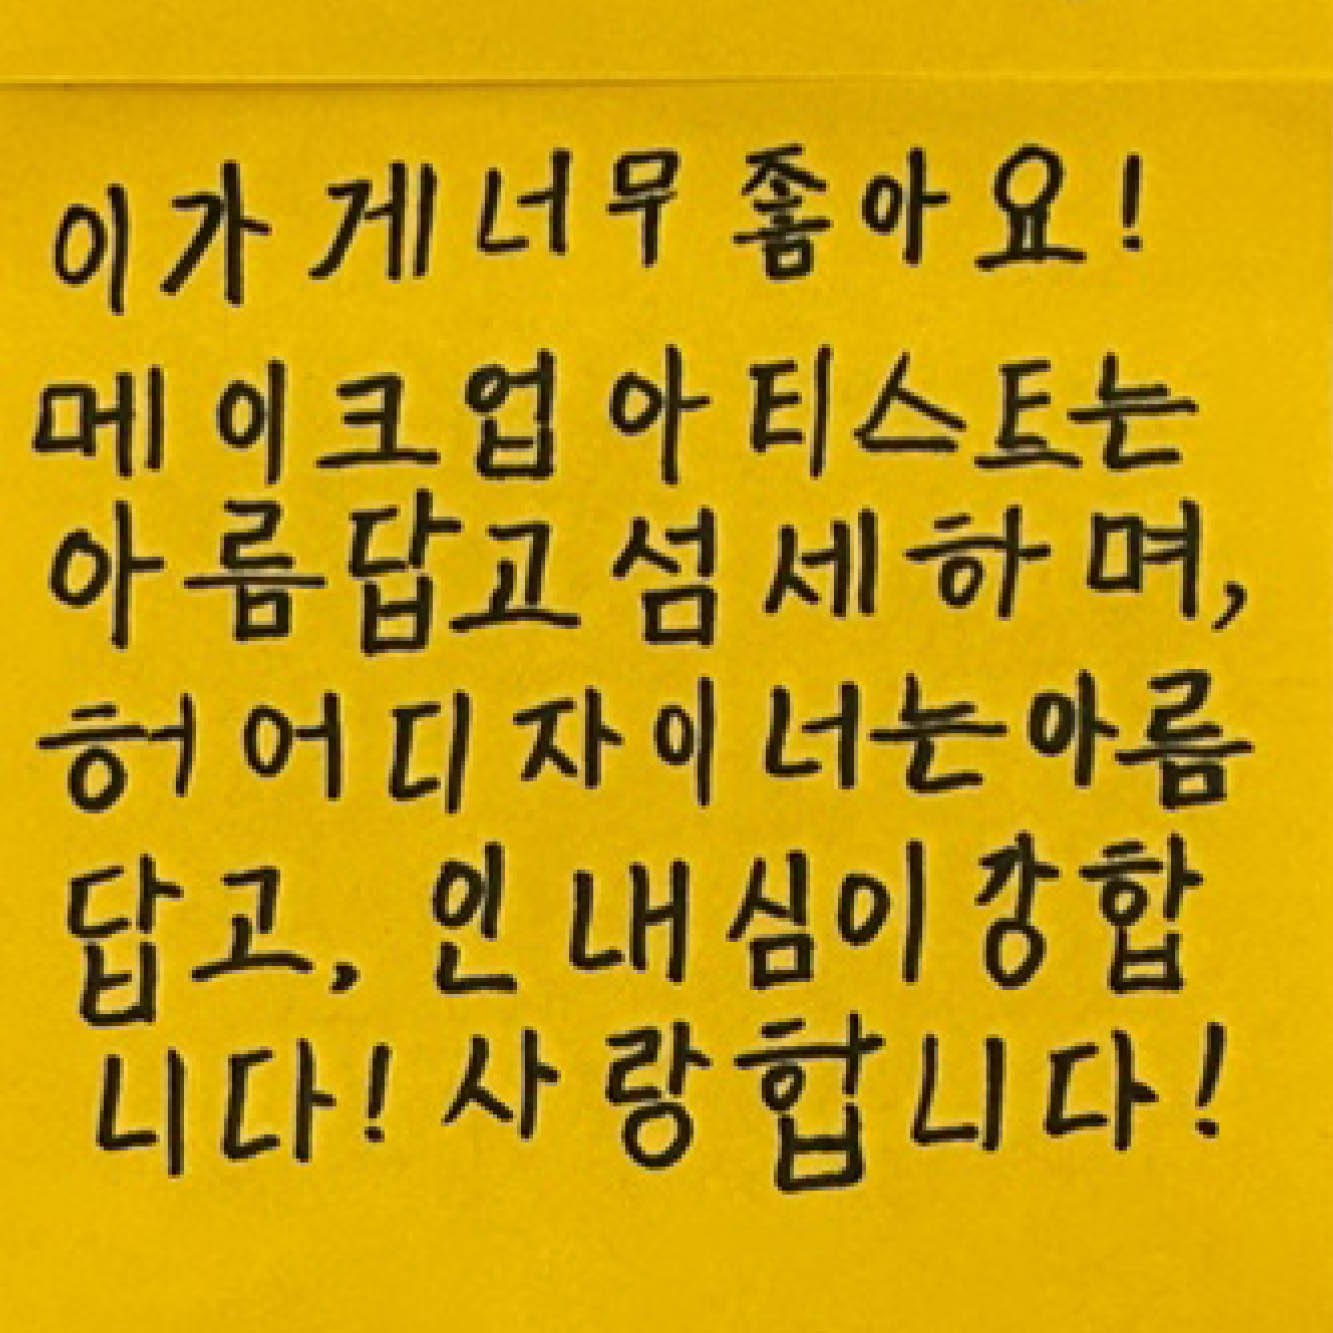 이가게너무 좋아요!
메이크업 아티스트는
아름답고 섬세하며,
허어디자이너는아름
답고, 인내심이강합
니다! 사랑합니다!